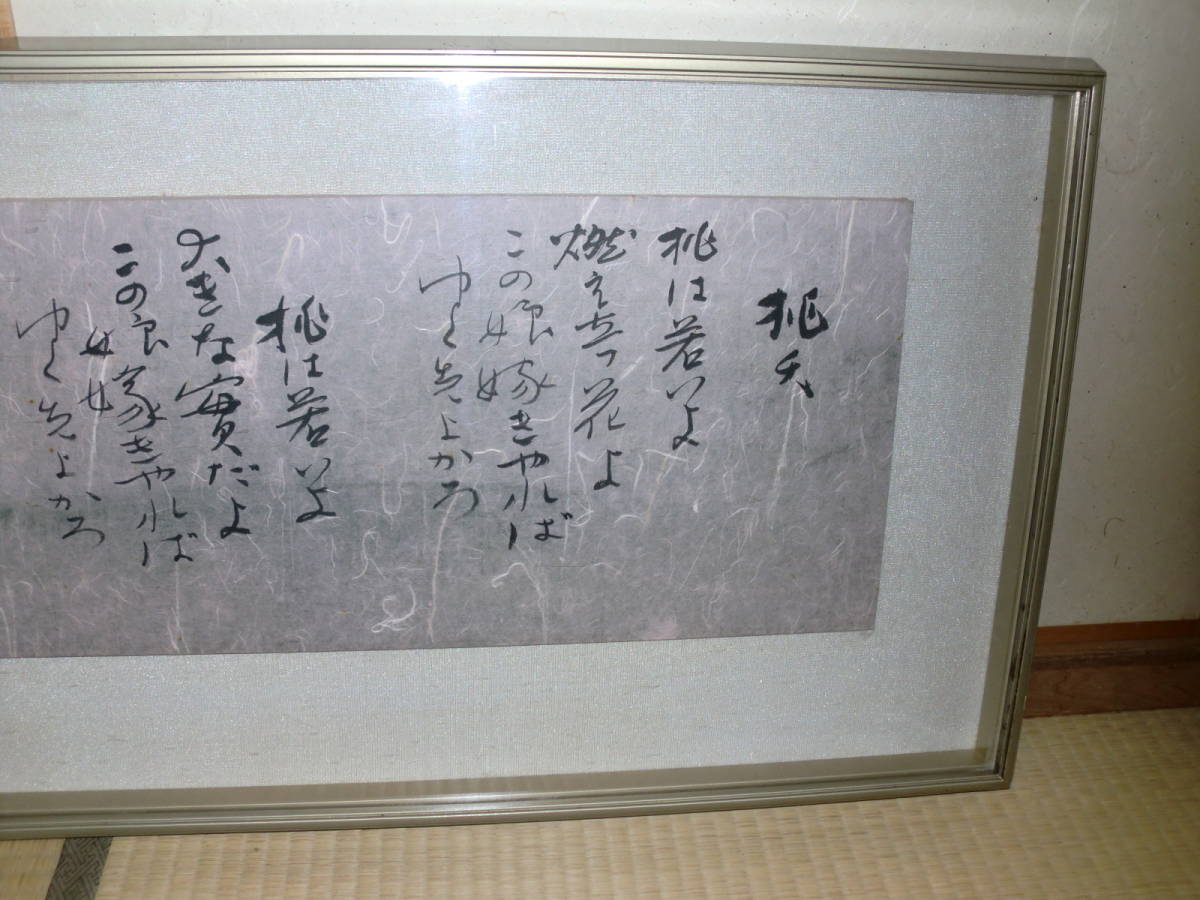 桃夭
桃は若いよ
燃え立つ花よ
この娘嫁きやれば
ゆく先よかろ
桃は若いよ
大きな實だよ
この娘嫁きやれば
ゆく先よかろ